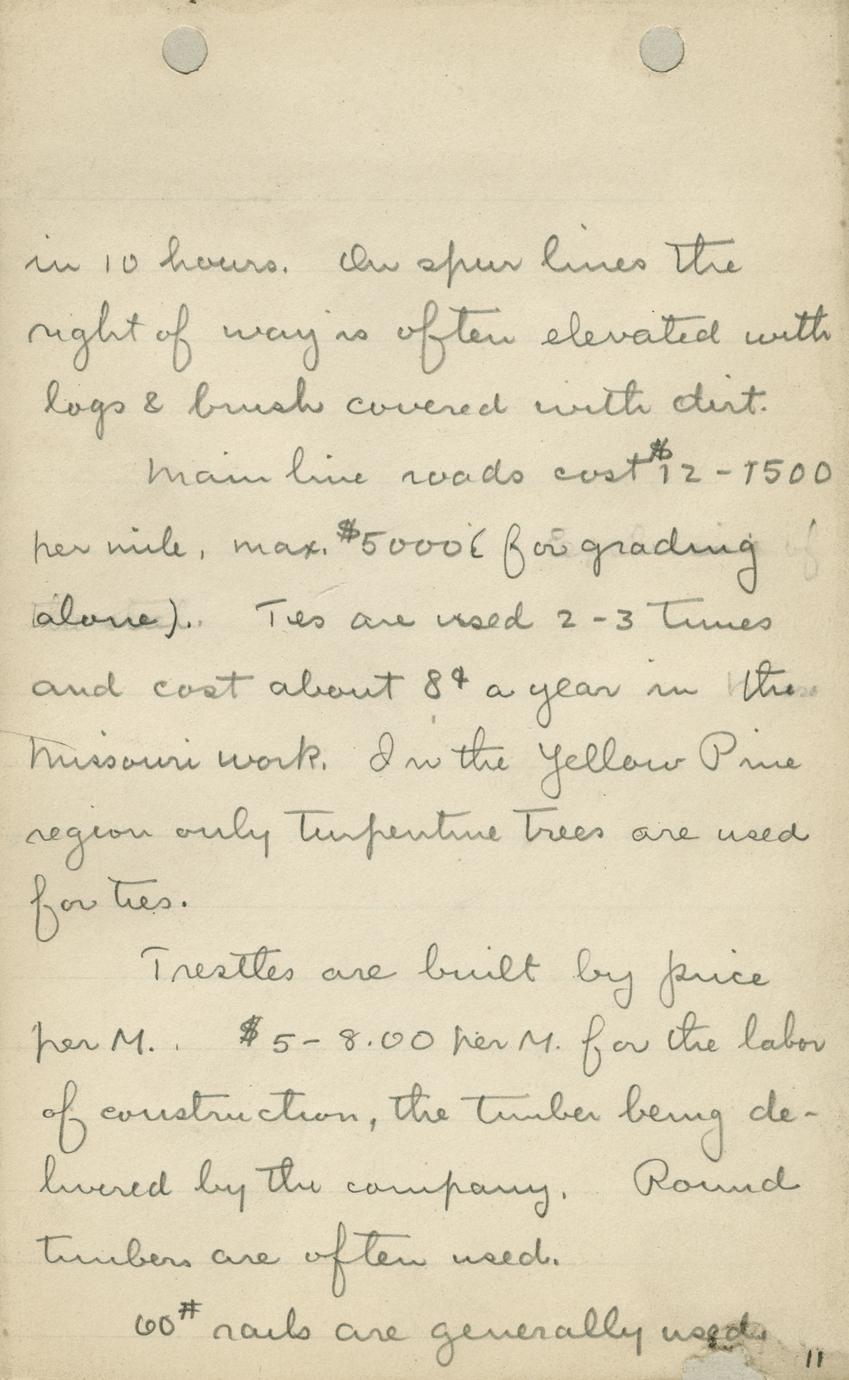 in 10 hours. On spur lines the
right of way is often elevated with
logs & brush covered with dirt.
Main line roads cost $12-1500
per mile, max. $5000 (for grading
alone). Ties are used 2-3 times
and cost about 8¢ a year in the
Missouri work. In the Yellow Pine
region only turpentine trees are used
for ties.
Trestles are built by price
per M. . $5-8.00 per M. for the labor
of construction, the timber being de-
livered by the company. Round
timbers are often used.
60# rails are generally used.
11